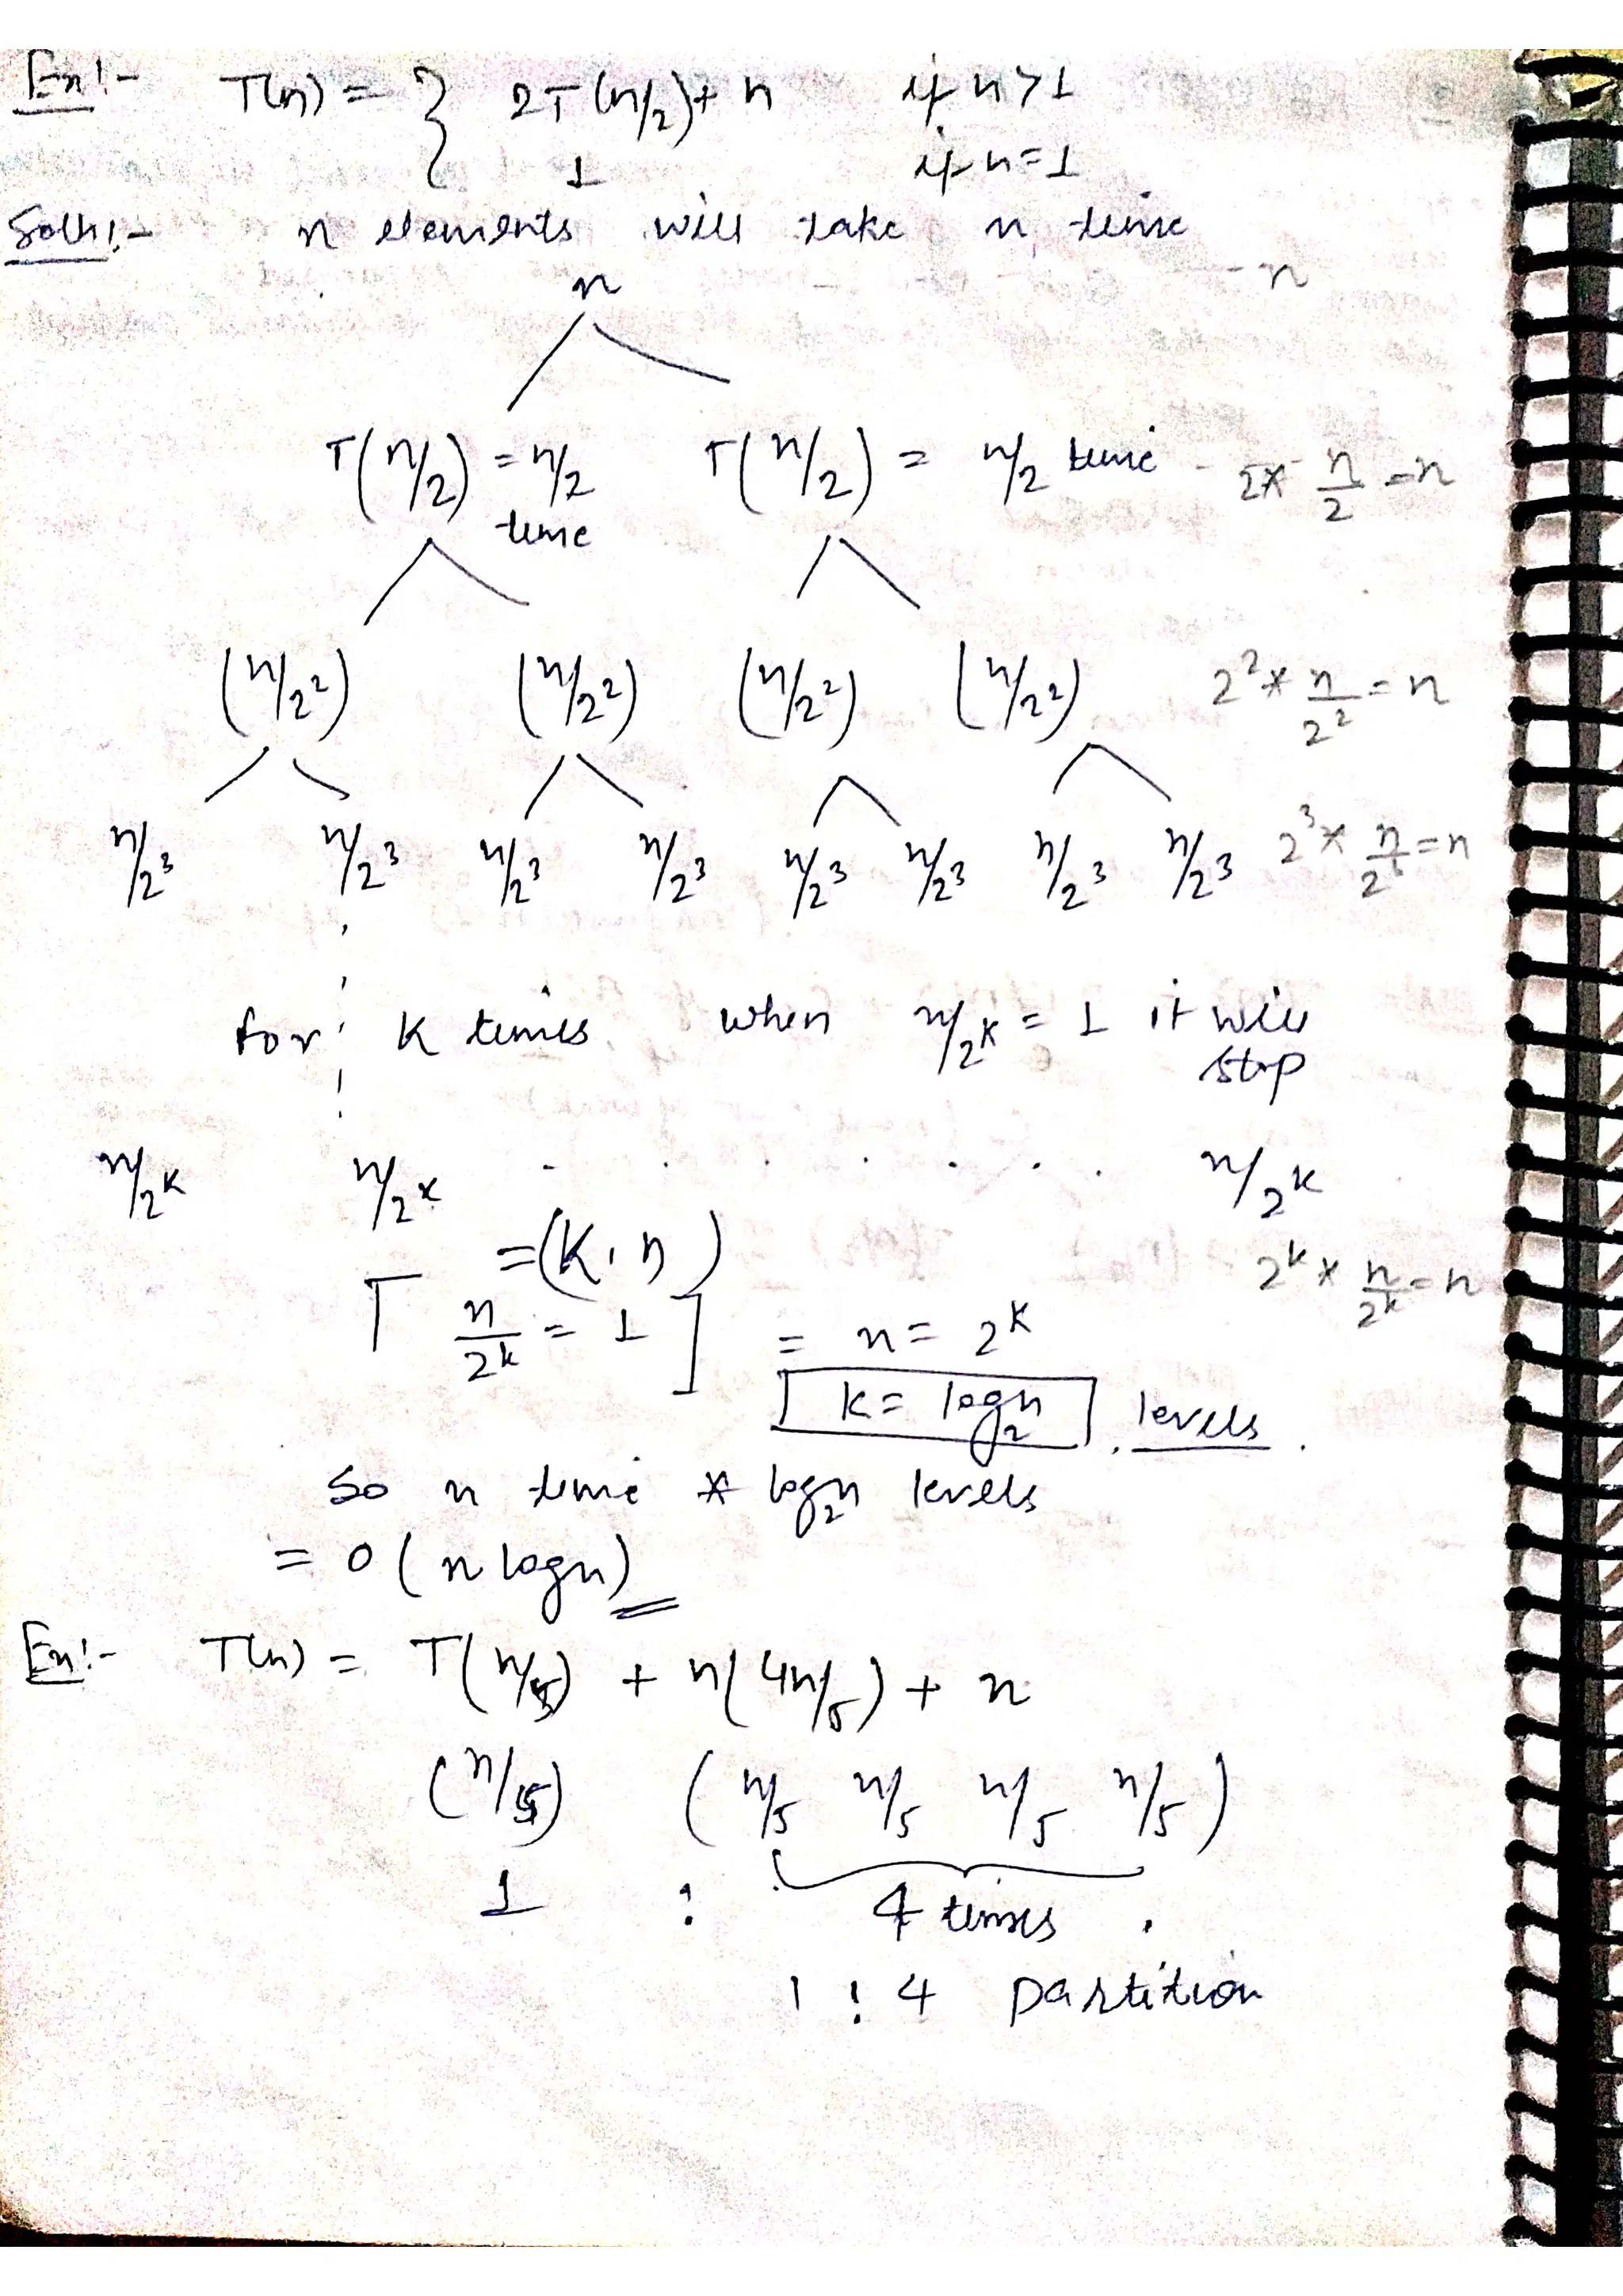 Ex!- T(n) = { 2T(n/2)+ n if n>1
1 if n=1
Soln!- n elements will take n time
n - n
T(n/2) = n/2 time T(n/2) = n/2 time - 2* n/2 = n
(n/2²) (n/2²) (n/2²) (n/2²) 2² * n/2² = n
n/2³ n/2³ n/2³ n/2³ n/2³ n/2³ n/2³ n/2³ 2³ * n/2 = n
for K times when n/2^K = 1 it will
stop
n/2^K n/2^K . . . . . . . n/2^K
=(K.n) 2^k * n/2^k = n
[ n/2^k = 1 ] = n = 2^K
k = log₂n . levels .
So n time * log₂n levels
= O(n logn)
Ex!- T(n) = T(n/5) + n(4n/5) + n
(n/5) (n/5 n/5 n/5 n/5)
1 : 4 times .
1 : 4 partition